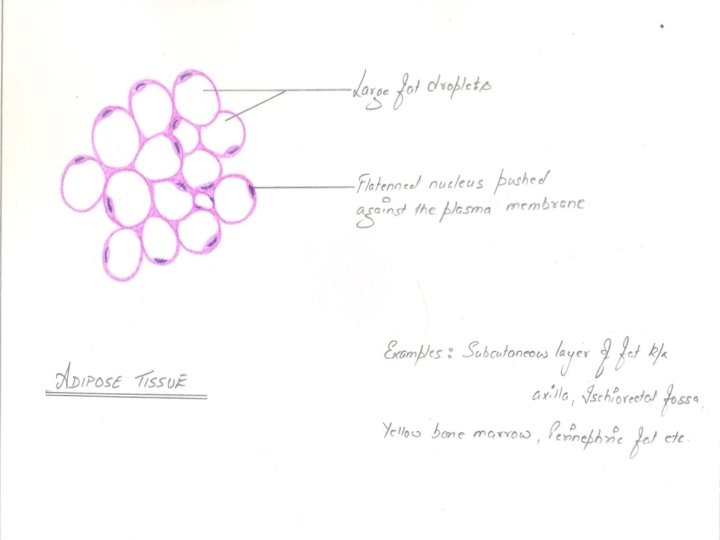 Large fat droplets
Flatenned nucleus pushed
against the plasma membrane
ADIPOSE TISSUE
Examples: Subcutaneous layer of fat k/a
axilla, Ischiorectal fossa,
Yellow bone marrow, Perinephric fat etc.